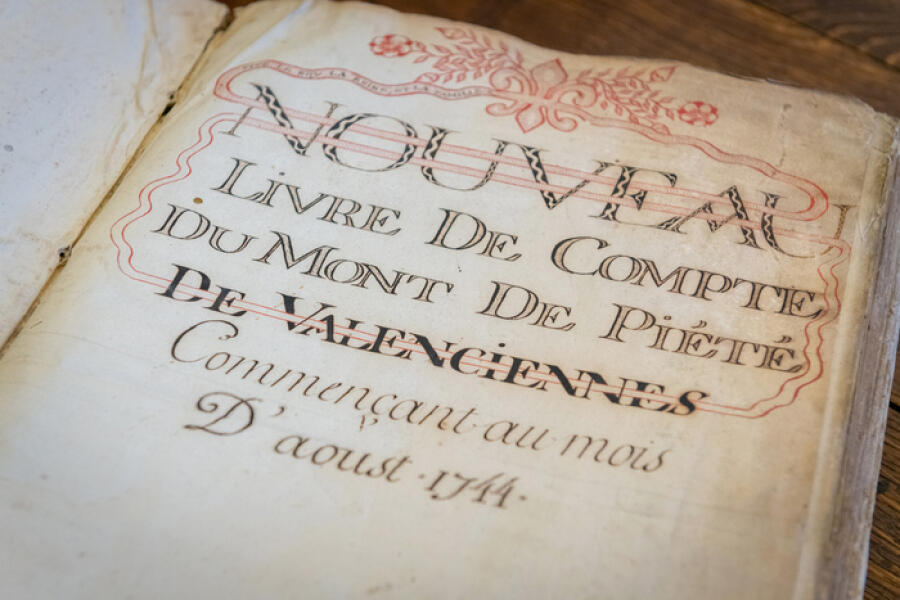 NOUVEAU
LIVRE DE COMPTE
DU MONT DE PIÉTÉ
DE VALENCIENNES
Commençant au mois
D'aoust .1744.